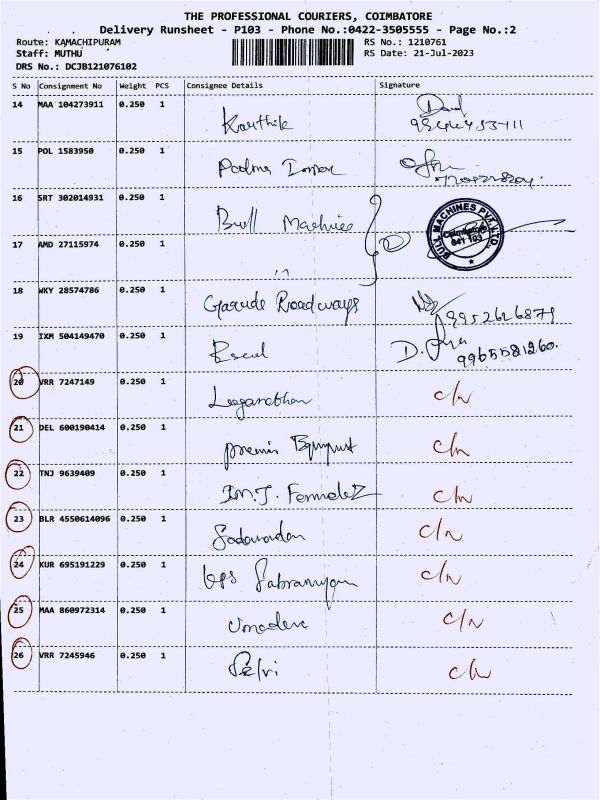 THE PROFESSIONAL COURIERS, COIMBATORE
Delivery Runsheet - P103 - Phone No.:0422-3505555 - Page No.:2
Route: KAMACHIPURAM RS No.: 1210761
Staff: MUTHU RS Date: 21-Jul-2023
DRS No.: DCJB121076102
S No Consignment No Weight PCS Consignee Details Signature
14 MAA 104273911 0.250 1 Karthik
15 POL 1583950 0.250 1 Padma
16 SRT 302014931 0.250 1 Bull Machines
BULL MACHINES PVT. LTD. Coimbatore 641 103
17 AMD 27115974 0.250 1 "
18 WKY 28574786 0.250 1 Garude Roadways 9952626879
19 IXM 504149470 0.250 1 9965581260.
20 VRR 7247149 0.250 1 c/n
21 DEL 600190414 0.250 1 c/n
22 TNJ 9639409 0.250 1 c/n
23 BLR 4550614096 0.250 1 c/n
24 KUR 695191229 0.250 1 c/n
25 MAA 860972314 0.250 1 c/n
26 VRR 7245946 0.250 1 Selvi c/n